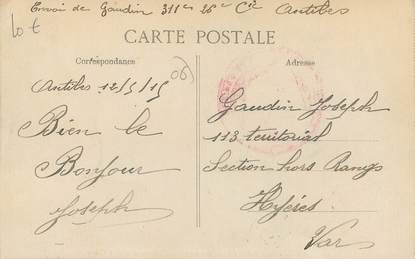 Envoi de Gaudin 311e 26e Cie Antibes
10 €
CARTE POSTALE
Correspondance
Antibes 12/5/15
(06)
Bien le
Bonjour
Joseph
Adresse
Gaudin Joseph
113 territorial
Section hors Rangs
Hyéres
Var